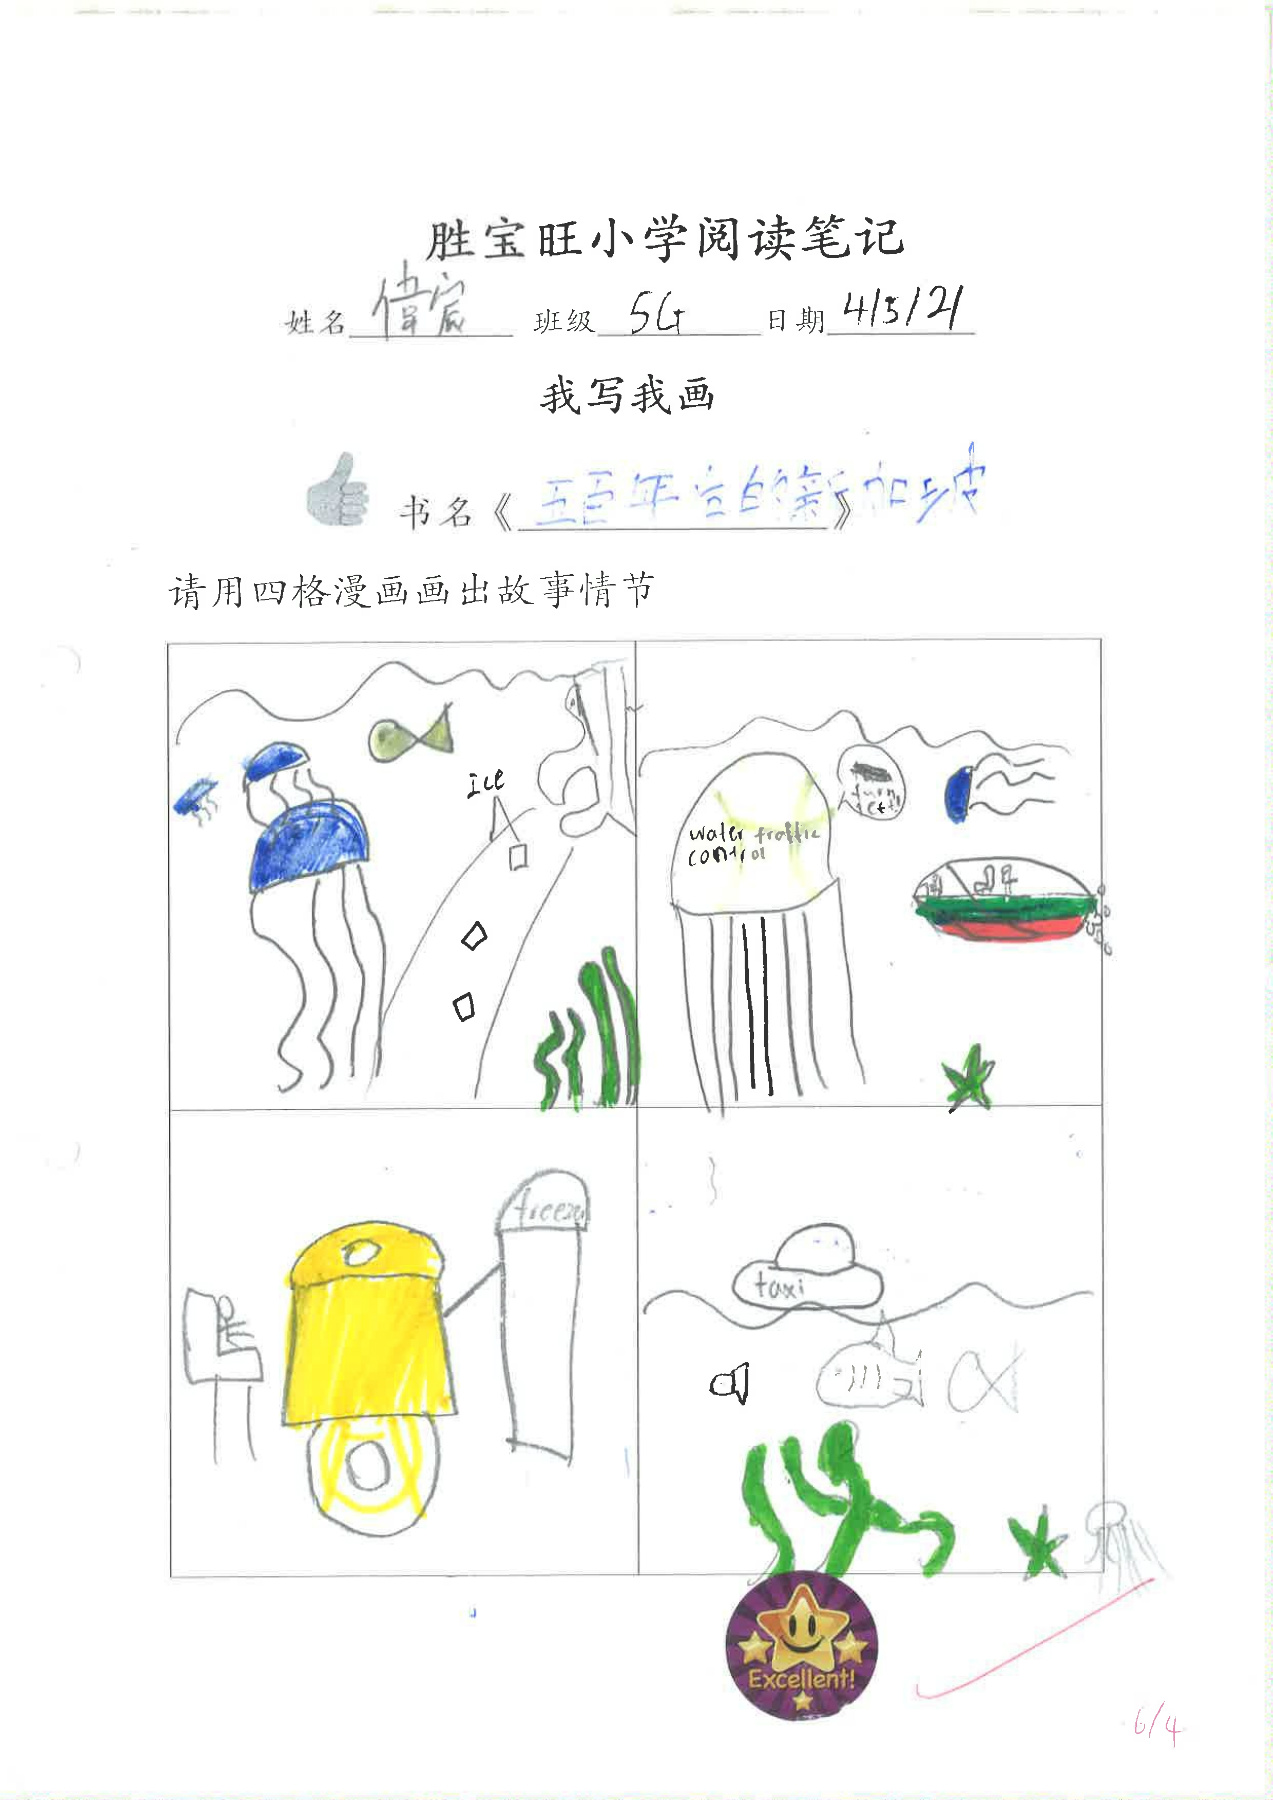 胜宝旺小学阅读笔记
姓名 偉宸 班级 5G 日期 4/5/21
我写我画
书名《五百年后的新加坡》
请用四格漫画画出故事情节
Ice
turn left!
water traffic
control
freeze
taxi
Excellent!
6/4